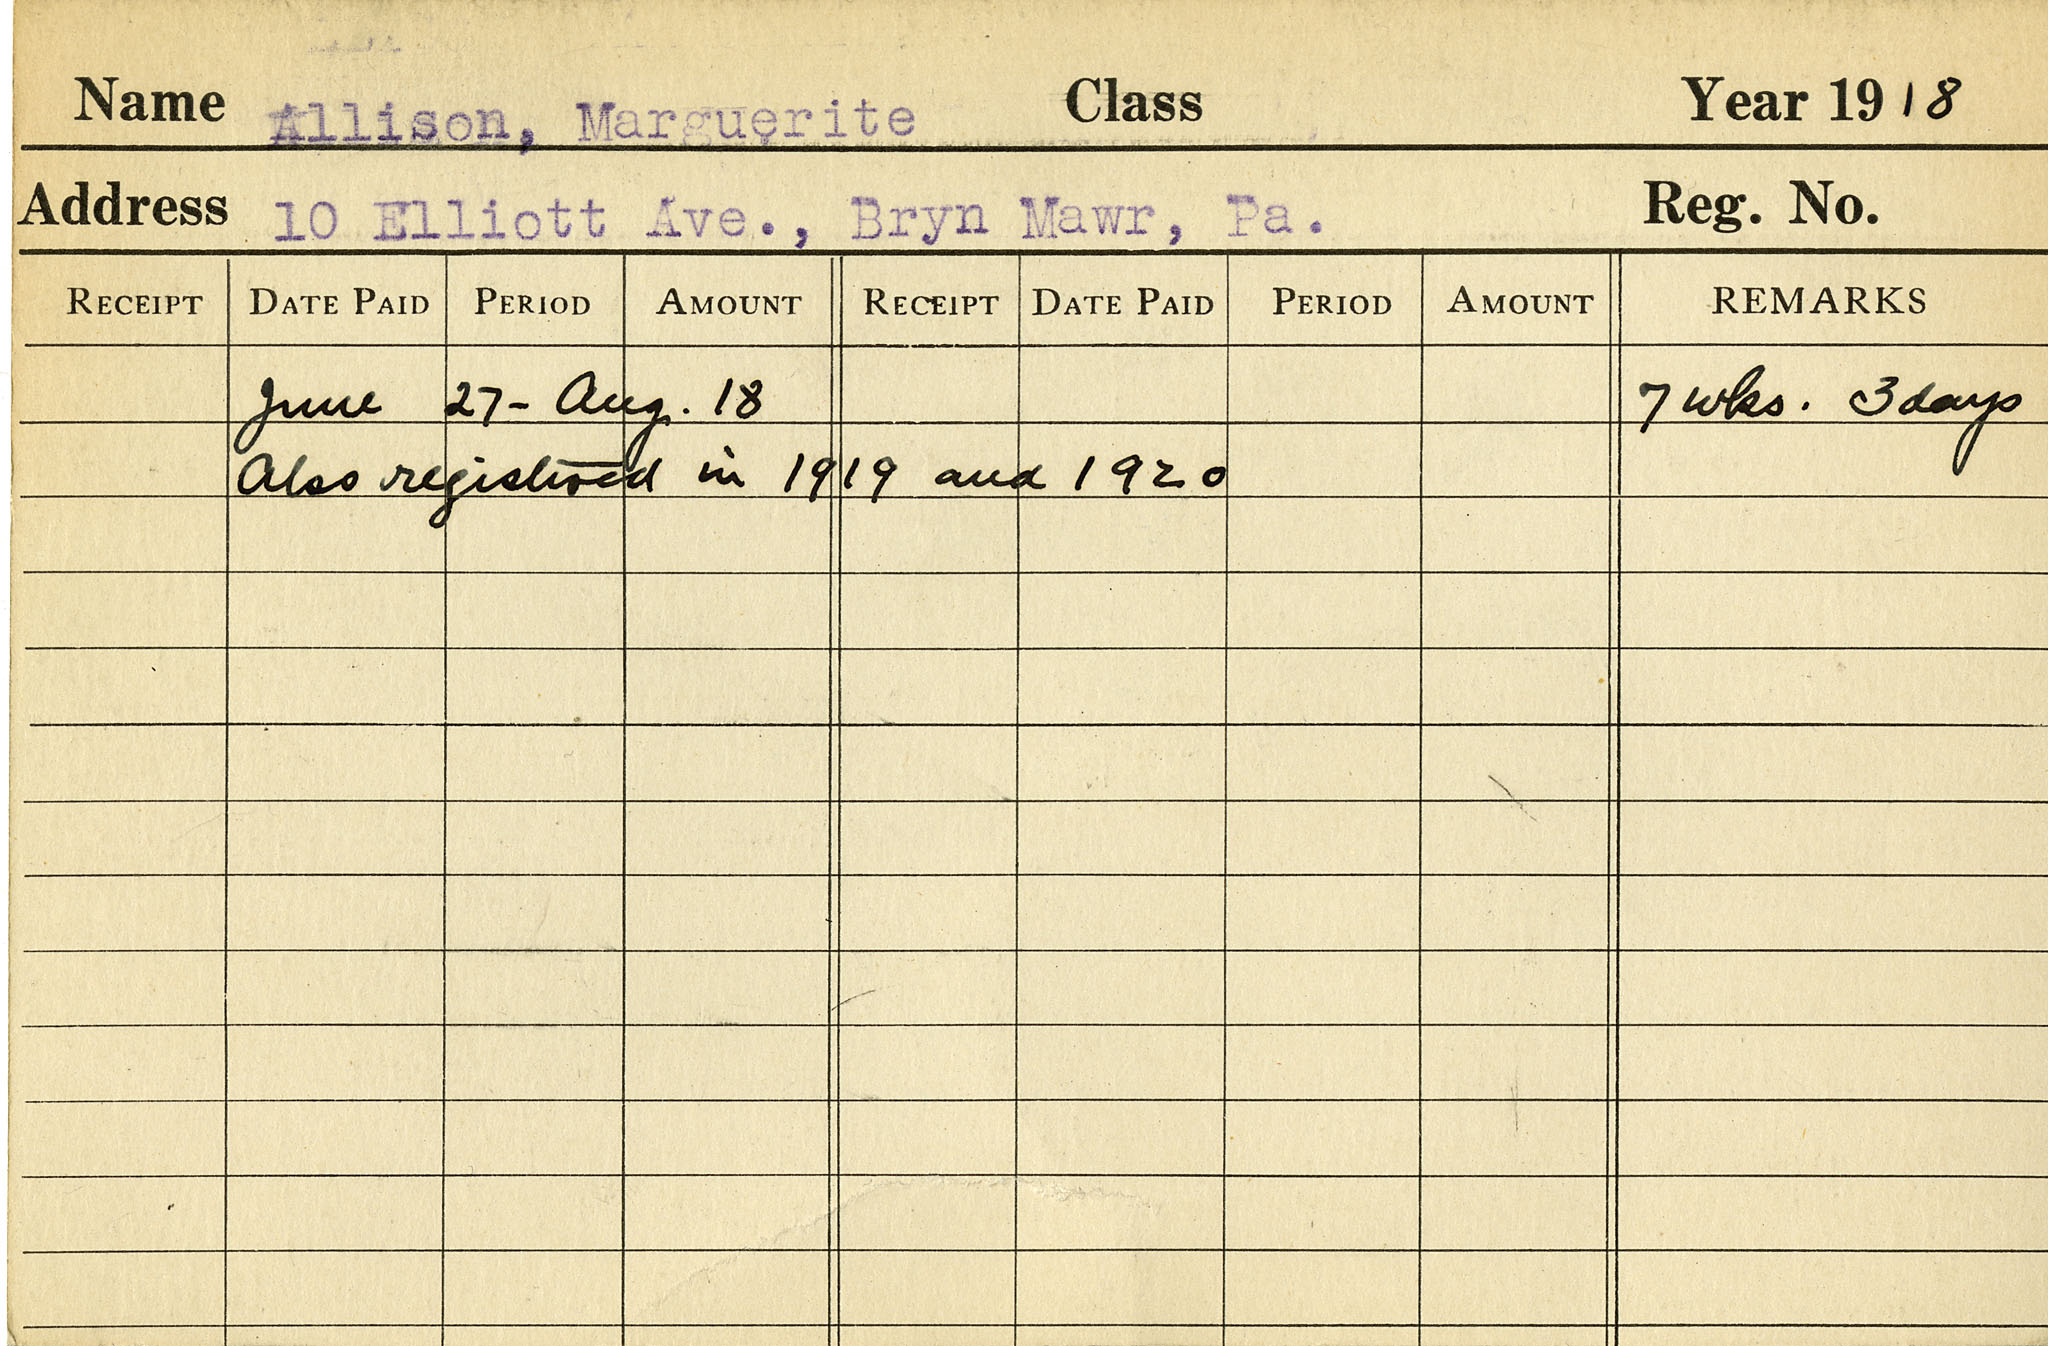 Name Allison, Marguerite Class Year 1918
Address 10 Elliott Ave., Bryn Mawr, Pa. Reg. No.
RECEIPT DATE PAID PERIOD AMOUNT RECEIPT DATE PAID PERIOD AMOUNT REMARKS
June 27- Aug. 18 7 wks. 3 days
Also registered in 1919 and 1920